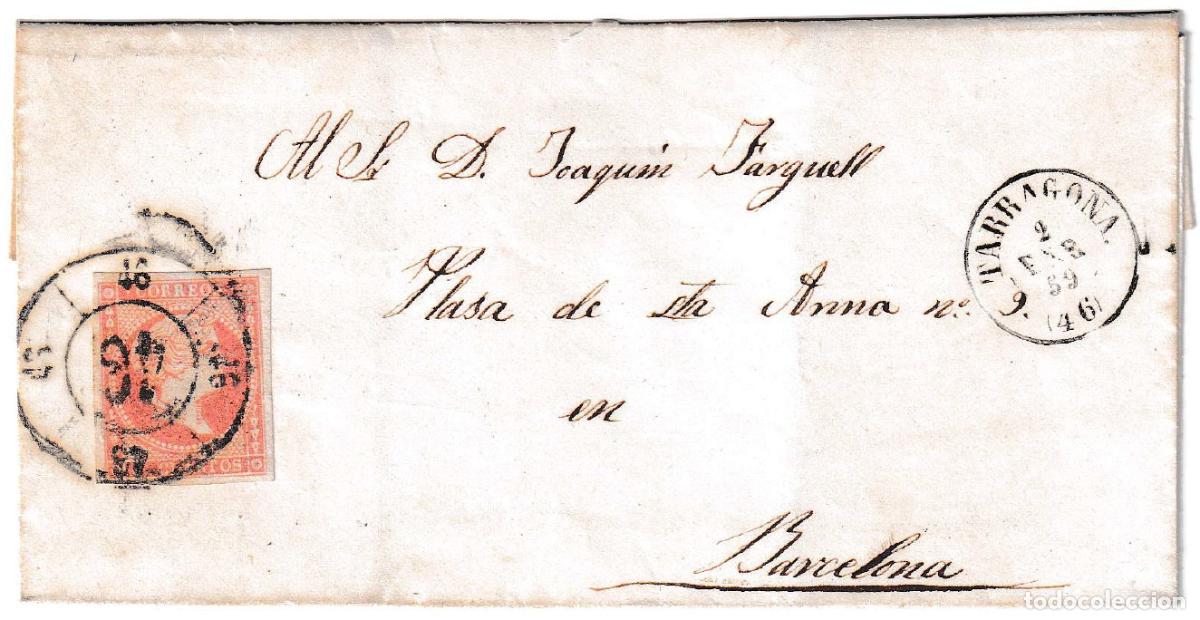 Al Sr. D. Joaquin Farguell
Plasa de Sta Anna nº. 9.
en
Barcelona
TARRAGONA.
2
59
(46)
CORREOS
46
46
46
46
todocoleccion